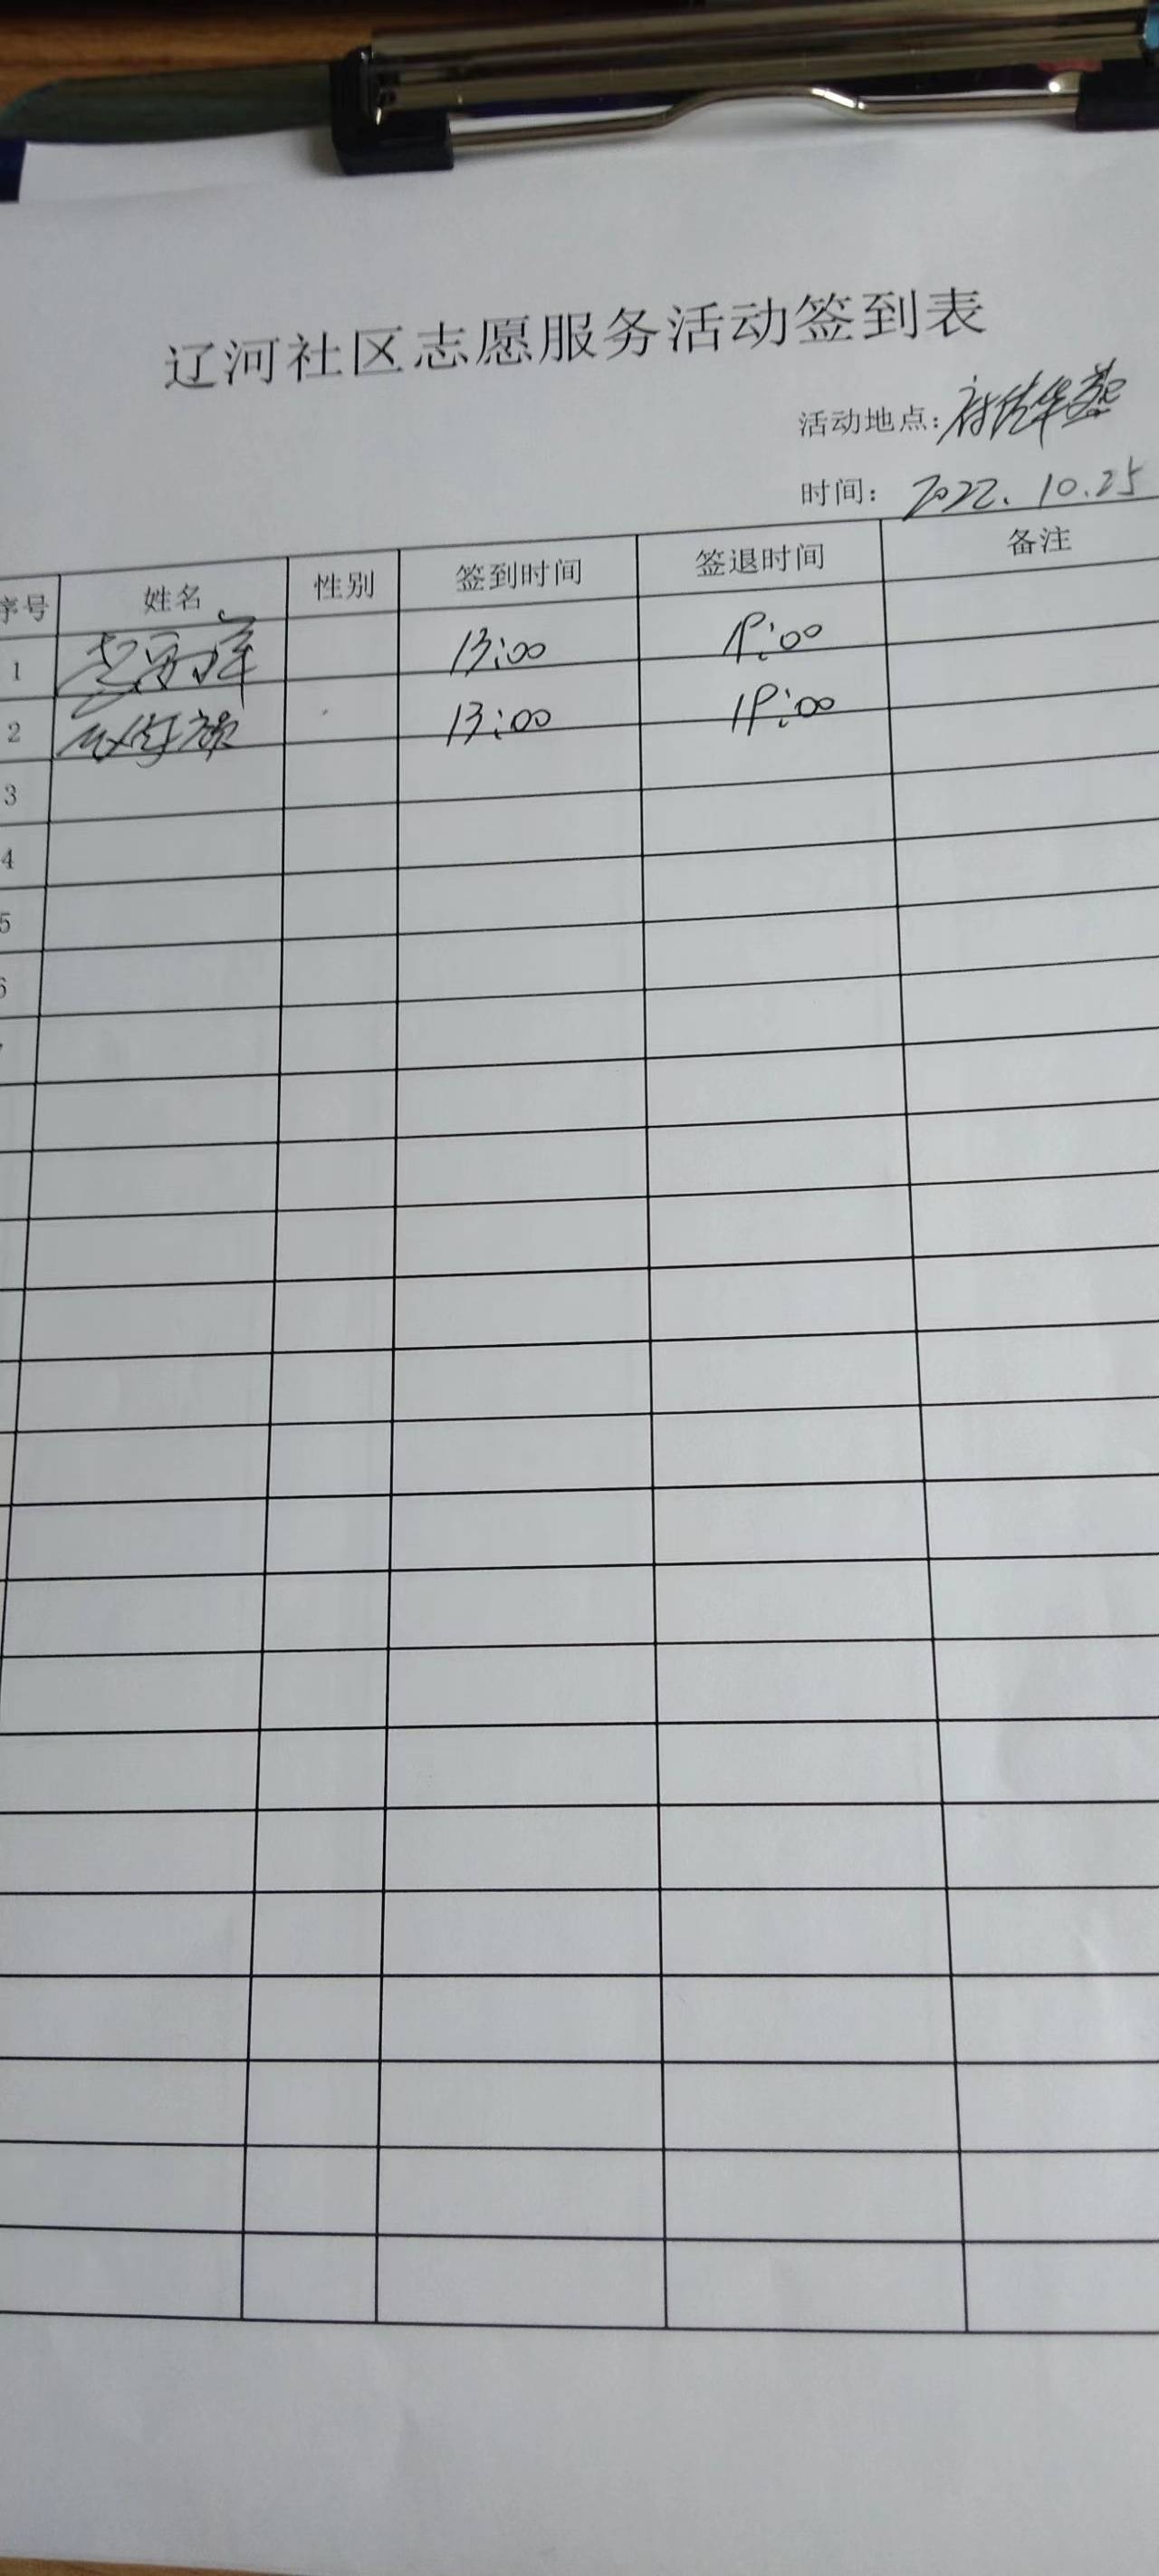 辽河社区志愿服务活动签到表
活动地点：
时间：2022.10.25
序号 姓名 性别 签到时间 签退时间 备注
1 13:00 19:00
2 13:00 19:00
3
4
5
6